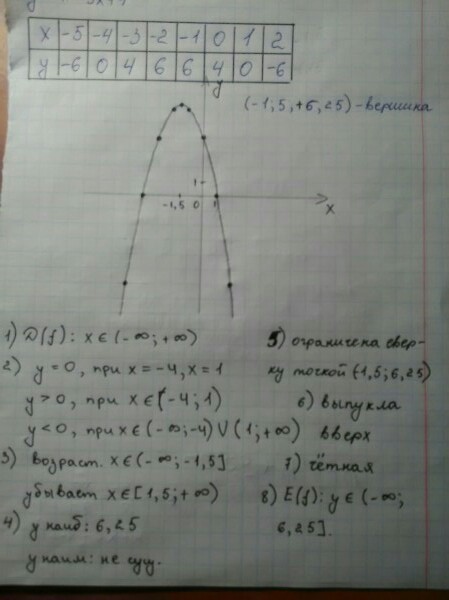 x -5 -4 -3 -2 -1 0 1 2
y -6 0 4 6 6 4 0 -6
y
(-1,5,+6,25)-вершина
1
-1,5 0 1 x
1) D(f): x∈(-∞;+∞)
2) y=0, при x=-4, x=1
y>0, при x∈(-4;1)
y<0, при x∈(-∞;-4)∪(1;+∞)
3) возраст. x∈(-∞;-1,5]
убывает x∈[1,5;+∞)
4) y наиб: 6,25
y наим: не сущ.
5) ограничена свер-
ху точкой (-1,5;6,25)
6) выпукла
вверх
7) чётная
8) E(f): y∈(-∞;
6,25].